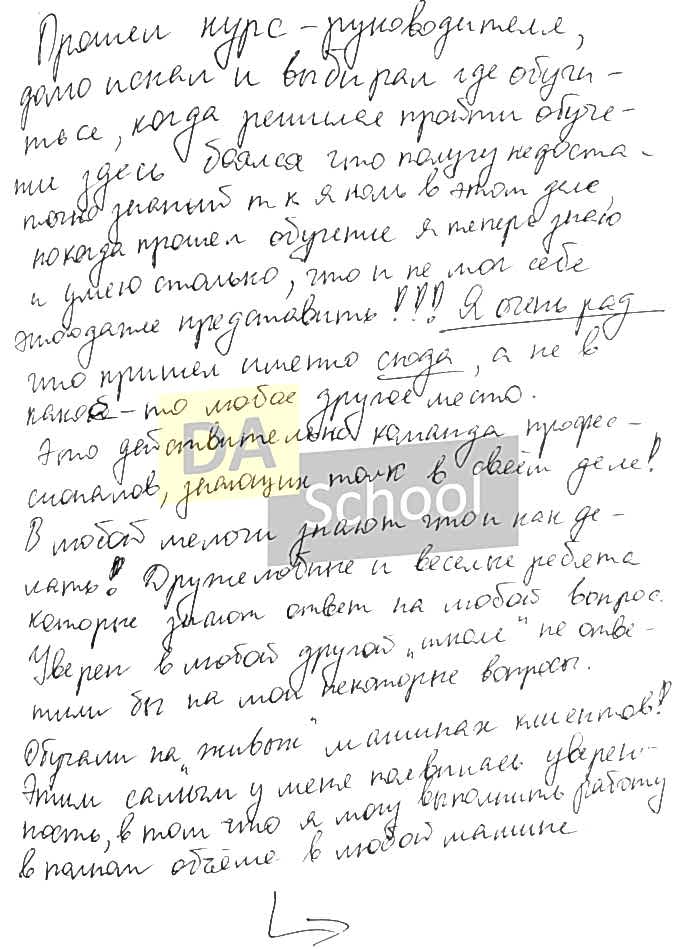 Прошел курс - руководителя,
долго искал и выбирал где обучи -
ться, когда решился пройти обуче-
ние здесь боялся что получу недоста -
точно знаний т к я ноль в этом деле,
но когда прошел обучение я теперь знаю
и умею столько, что и не мог себе
это даже представить!!! Я очень рад
что пришел именно сюда, а не в
какое - то любое другое место.
Это действительно команда профес -
сионалов, знающих толк в своём деле!
DA
School
В любой мелочи знают что и как де -
лать! Дружелюбные и веселые ребята
которые знают ответ на любой вопрос.
Уверен в любой другой „школе" не отве -
тили бы на мои некоторые вопросы.
Обучали на „живых" машинах клиентов!
Этим самым у меня появилась уверен -
ность, в том что я могу выполнить работу
в полном объёме в любой машине